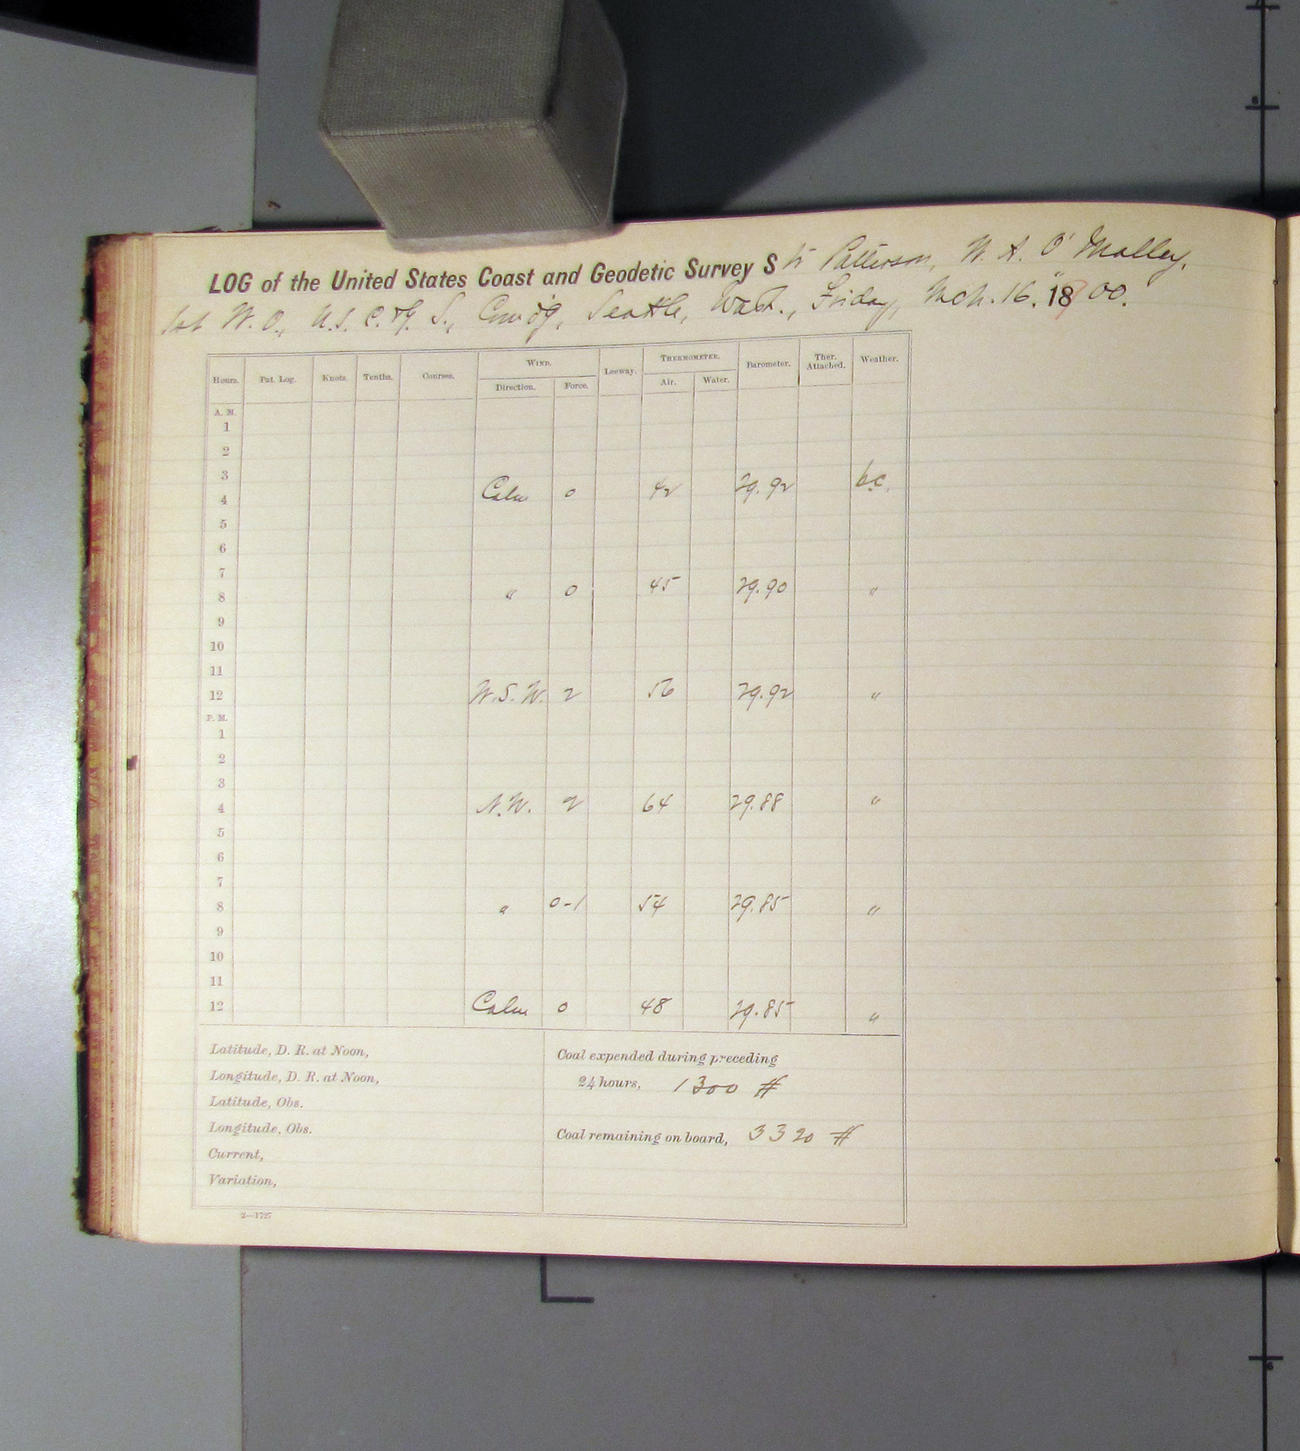 LOG of the United States Coast and Geodetic Survey Str Patterson, W. A. O'Malley,
1st W. O., U.S. C. & G. S., Com'd'g, Seattle, Wash., Friday, Mch. 16, 1900.
WIND. THERMOMETER.
Hours. Pat. Log. Knots. Tenths. Courses. Direction. Force. Leeway. Air. Water. Barometer. Ther. Attached. Weather.
A. M.
1
2
3
4 Calm 0 42 29.92 b.c.
5
6
7
8 " 0 45 29.90 "
9
10
11
12 W.S.W. 2 56 29.92 "
P. M.
1
2
3
4 N.W. 2 64 29.88 "
5
6
7
8 " 0-1 54 29.85 "
9
10
11
12 Calm 0 48 29.85 "
Latitude, D. R. at Noon,
Longitude, D. R. at Noon,
Latitude, Obs.
Longitude, Obs.
Current,
Variation,
Coal expended during preceding
24 hours, 1300 #
Coal remaining on board, 3320 #
2—1727